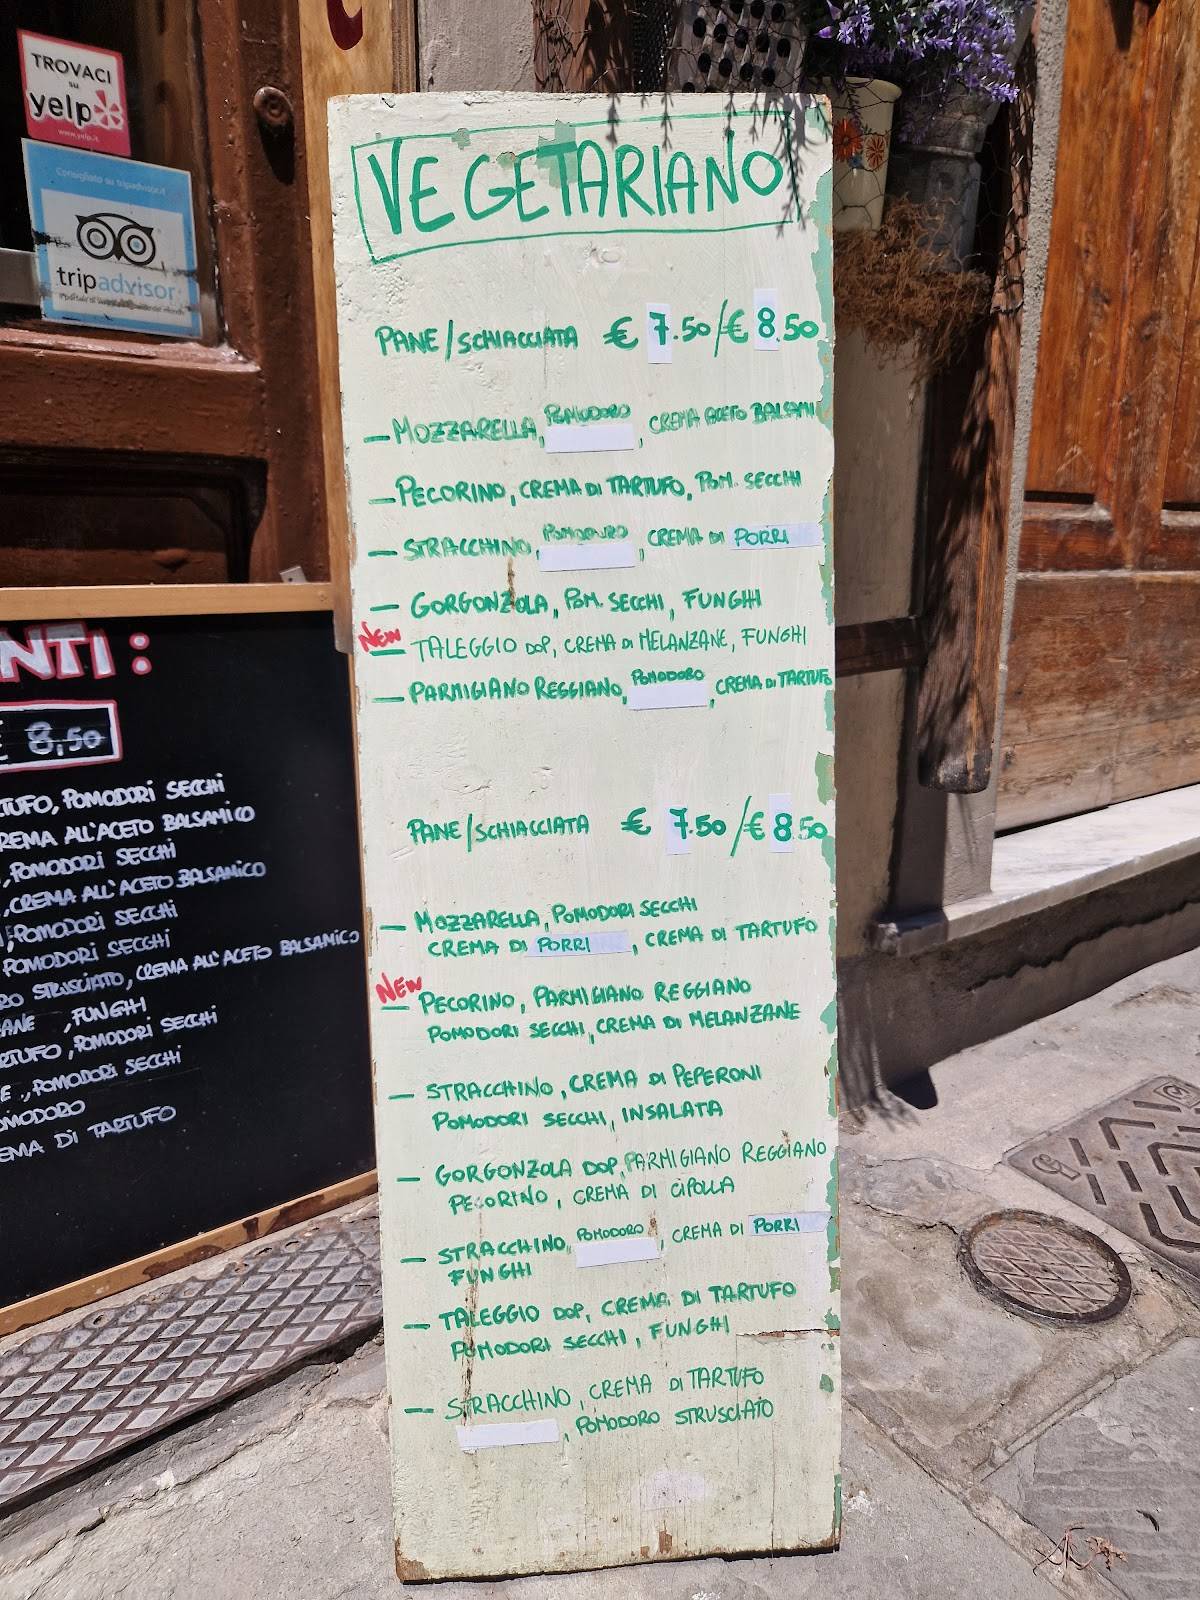 TROVACI
su
yelp
www.yelp.it
Consigliato su tripadvisor.it
tripadvisor
VEGETARIANO
PANE/SCHIACCIATA € 7.50/€ 8.50
— MOZZARELLA, POMODORO, CREMA ACETO BALSAMI
— PECORINO, CREMA DI TARTUFO, POM. SECCHI
— STRACCHINO, POMODORO, CREMA DI PORRI
— GORGONZOLA, POM. SECCHI, FUNGHI
NEW
— TALEGGIO DOP, CREMA DI MELANZANE, FUNGHI
— PARMIGIANO REGGIANO, POMODORO, CREMA DI TARTUFO
PANE/SCHIACCIATA € 7.50/€ 8.50
— MOZZARELLA, POMODORI SECCHI
CREMA DI PORRI, CREMA DI TARTUFO
NEW
— PECORINO, PARMIGIANO REGGIANO
POMODORI SECCHI, CREMA DI MELANZANE
— STRACCHINO, CREMA DI PEPERONI
POMODORI SECCHI, INSALATA
— GORGONZOLA DOP, PARMIGIANO REGGIANO
PECORINO, CREMA DI CIPOLLA
— STRACCHINO, POMODORO, CREMA DI PORRI
FUNGHI
— TALEGGIO DOP, CREMA DI TARTUFO
POMODORI SECCHI, FUNGHI
— STRACCHINO, CREMA DI TARTUFO
, POMODORO STRUSCIATO
NTI:
€ 8,50
TUFO, POMODORI SECCHI
REMA ALL'ACETO BALSAMICO
, POMODORI SECCHI
, CREMA ALL'ACETO BALSAMICO
, POMODORI SECCHI
POMODORI SECCHI
RO STRUSCIATO, CREMA ALL'ACETO BALSAMICO
ANE , FUNGHI
RTUFO, POMODORI SECCHI
E , POMODORI SECCHI
OMODORO
EMA DI TARTUFO